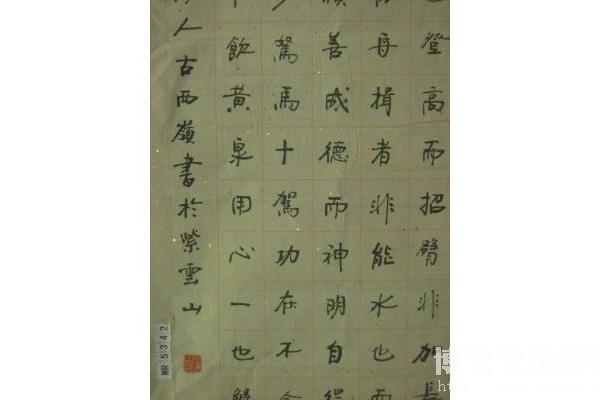 登高而招臂非加長
舟楫者非能水也而
善成德而神明自得
駑馬十駕功在不舍
飲黃泉用心一也蟹
人古西嶺書於紫雲山
5342